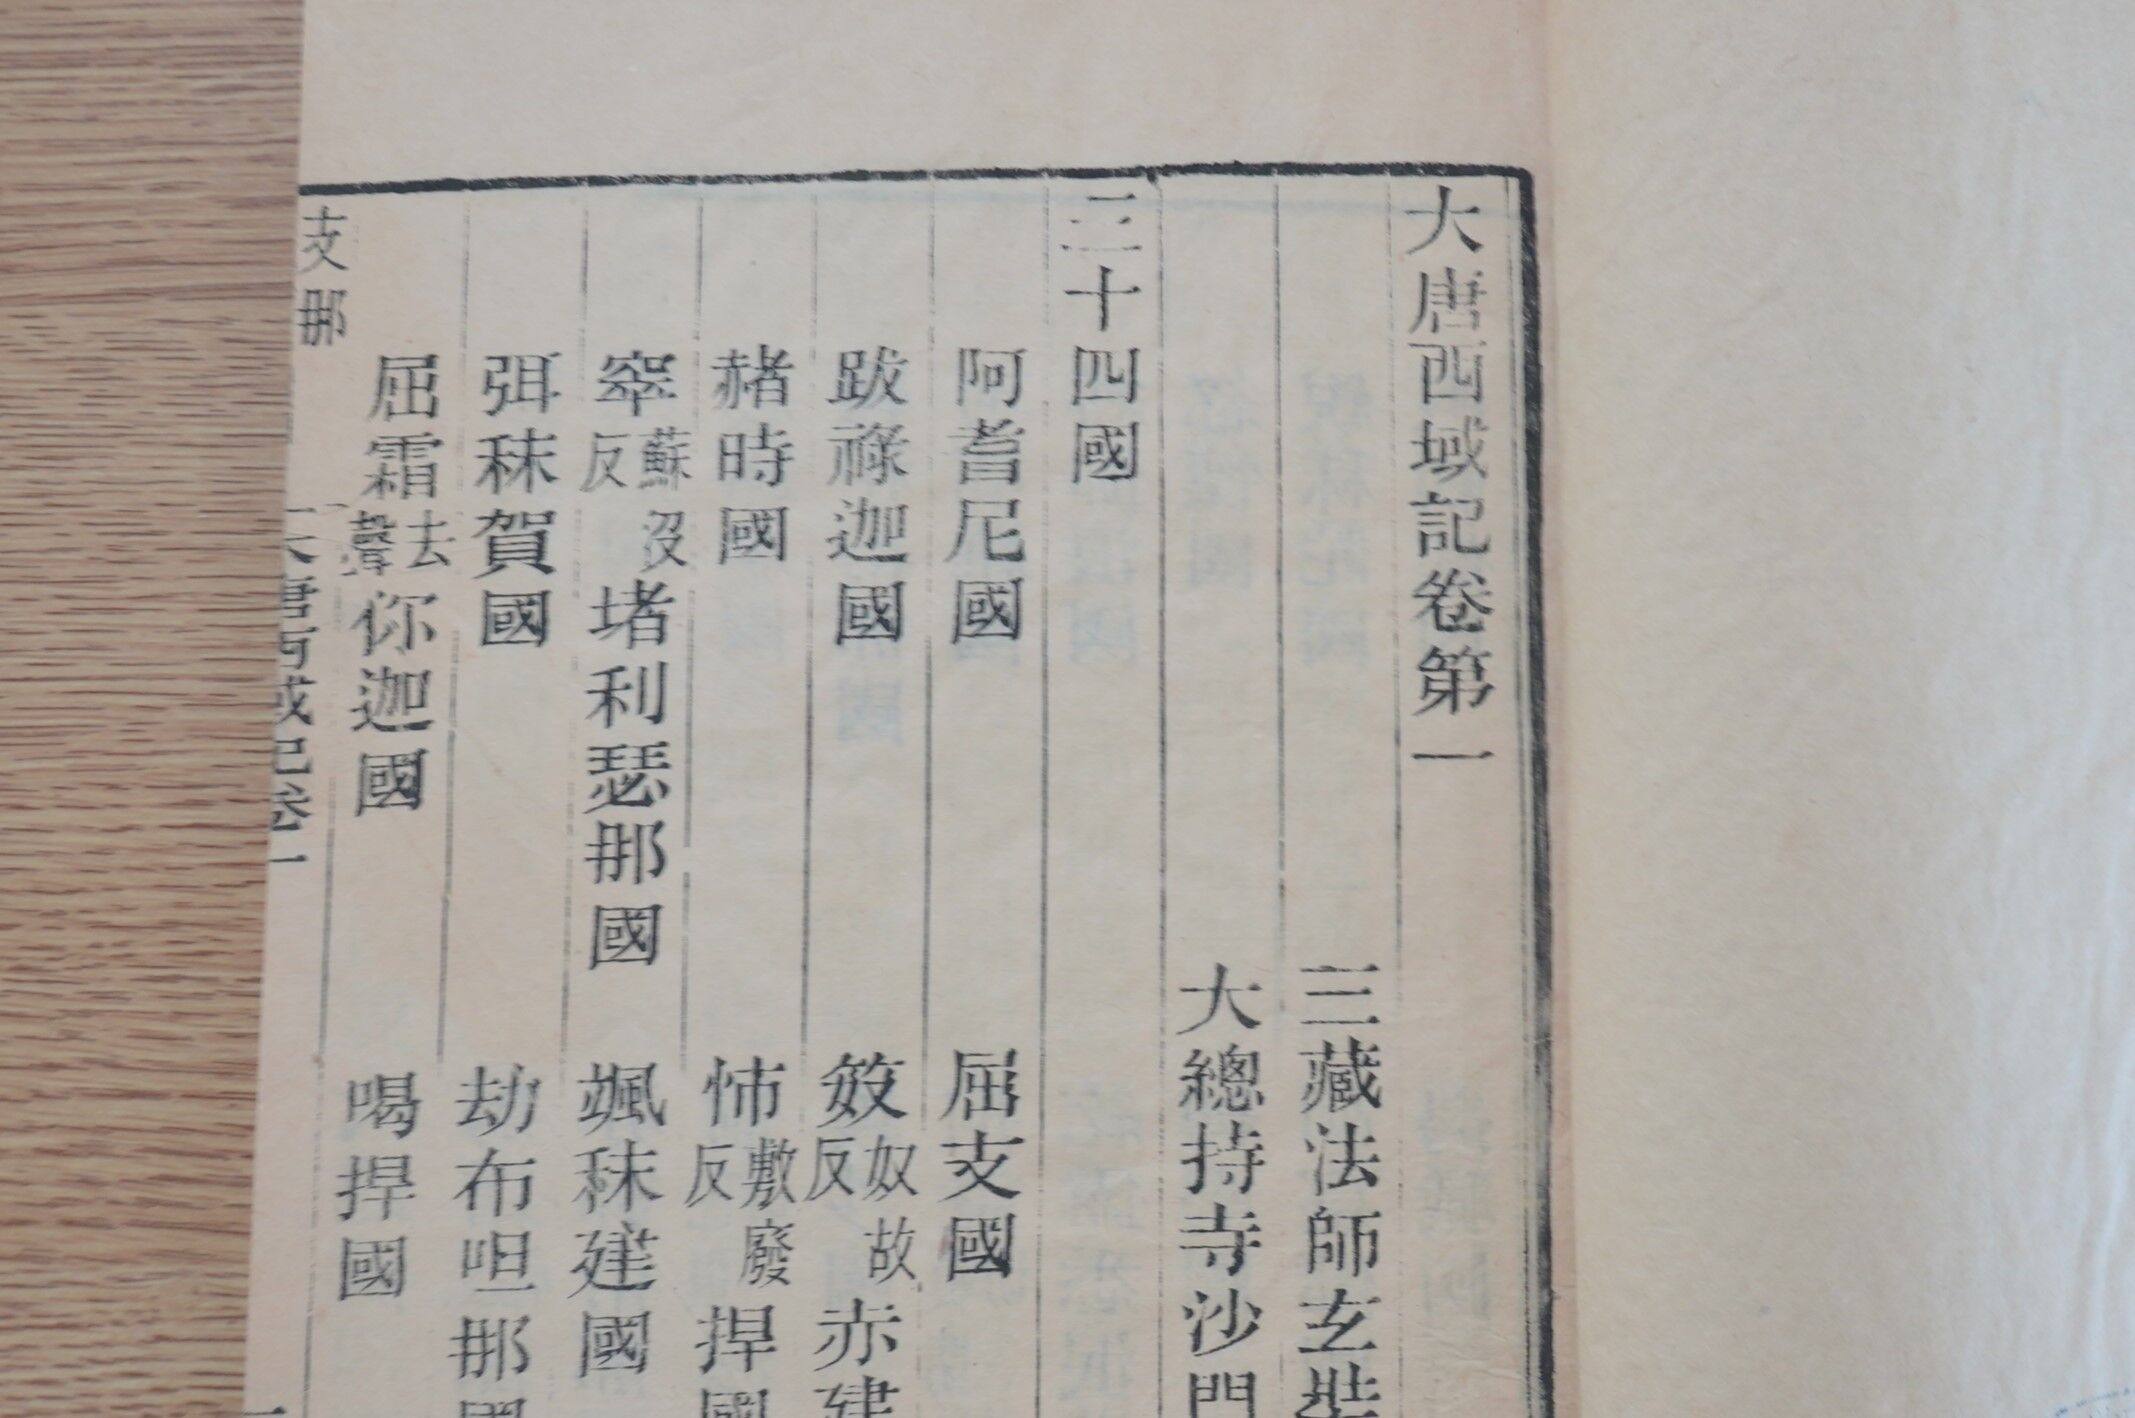 大唐西域記卷第一
三藏法師玄奘
大總持寺沙門
三十四國
阿耆尼國 屈支國
跋祿迦國 笯奴故反赤建
赭時國 㤄敷廢反捍國
窣蘇沒反堵利瑟那國 颯秣建國
弭秣賀國 劫布呾那國
屈霜去聲你迦國 喝捍國
支那 大唐西域記卷一